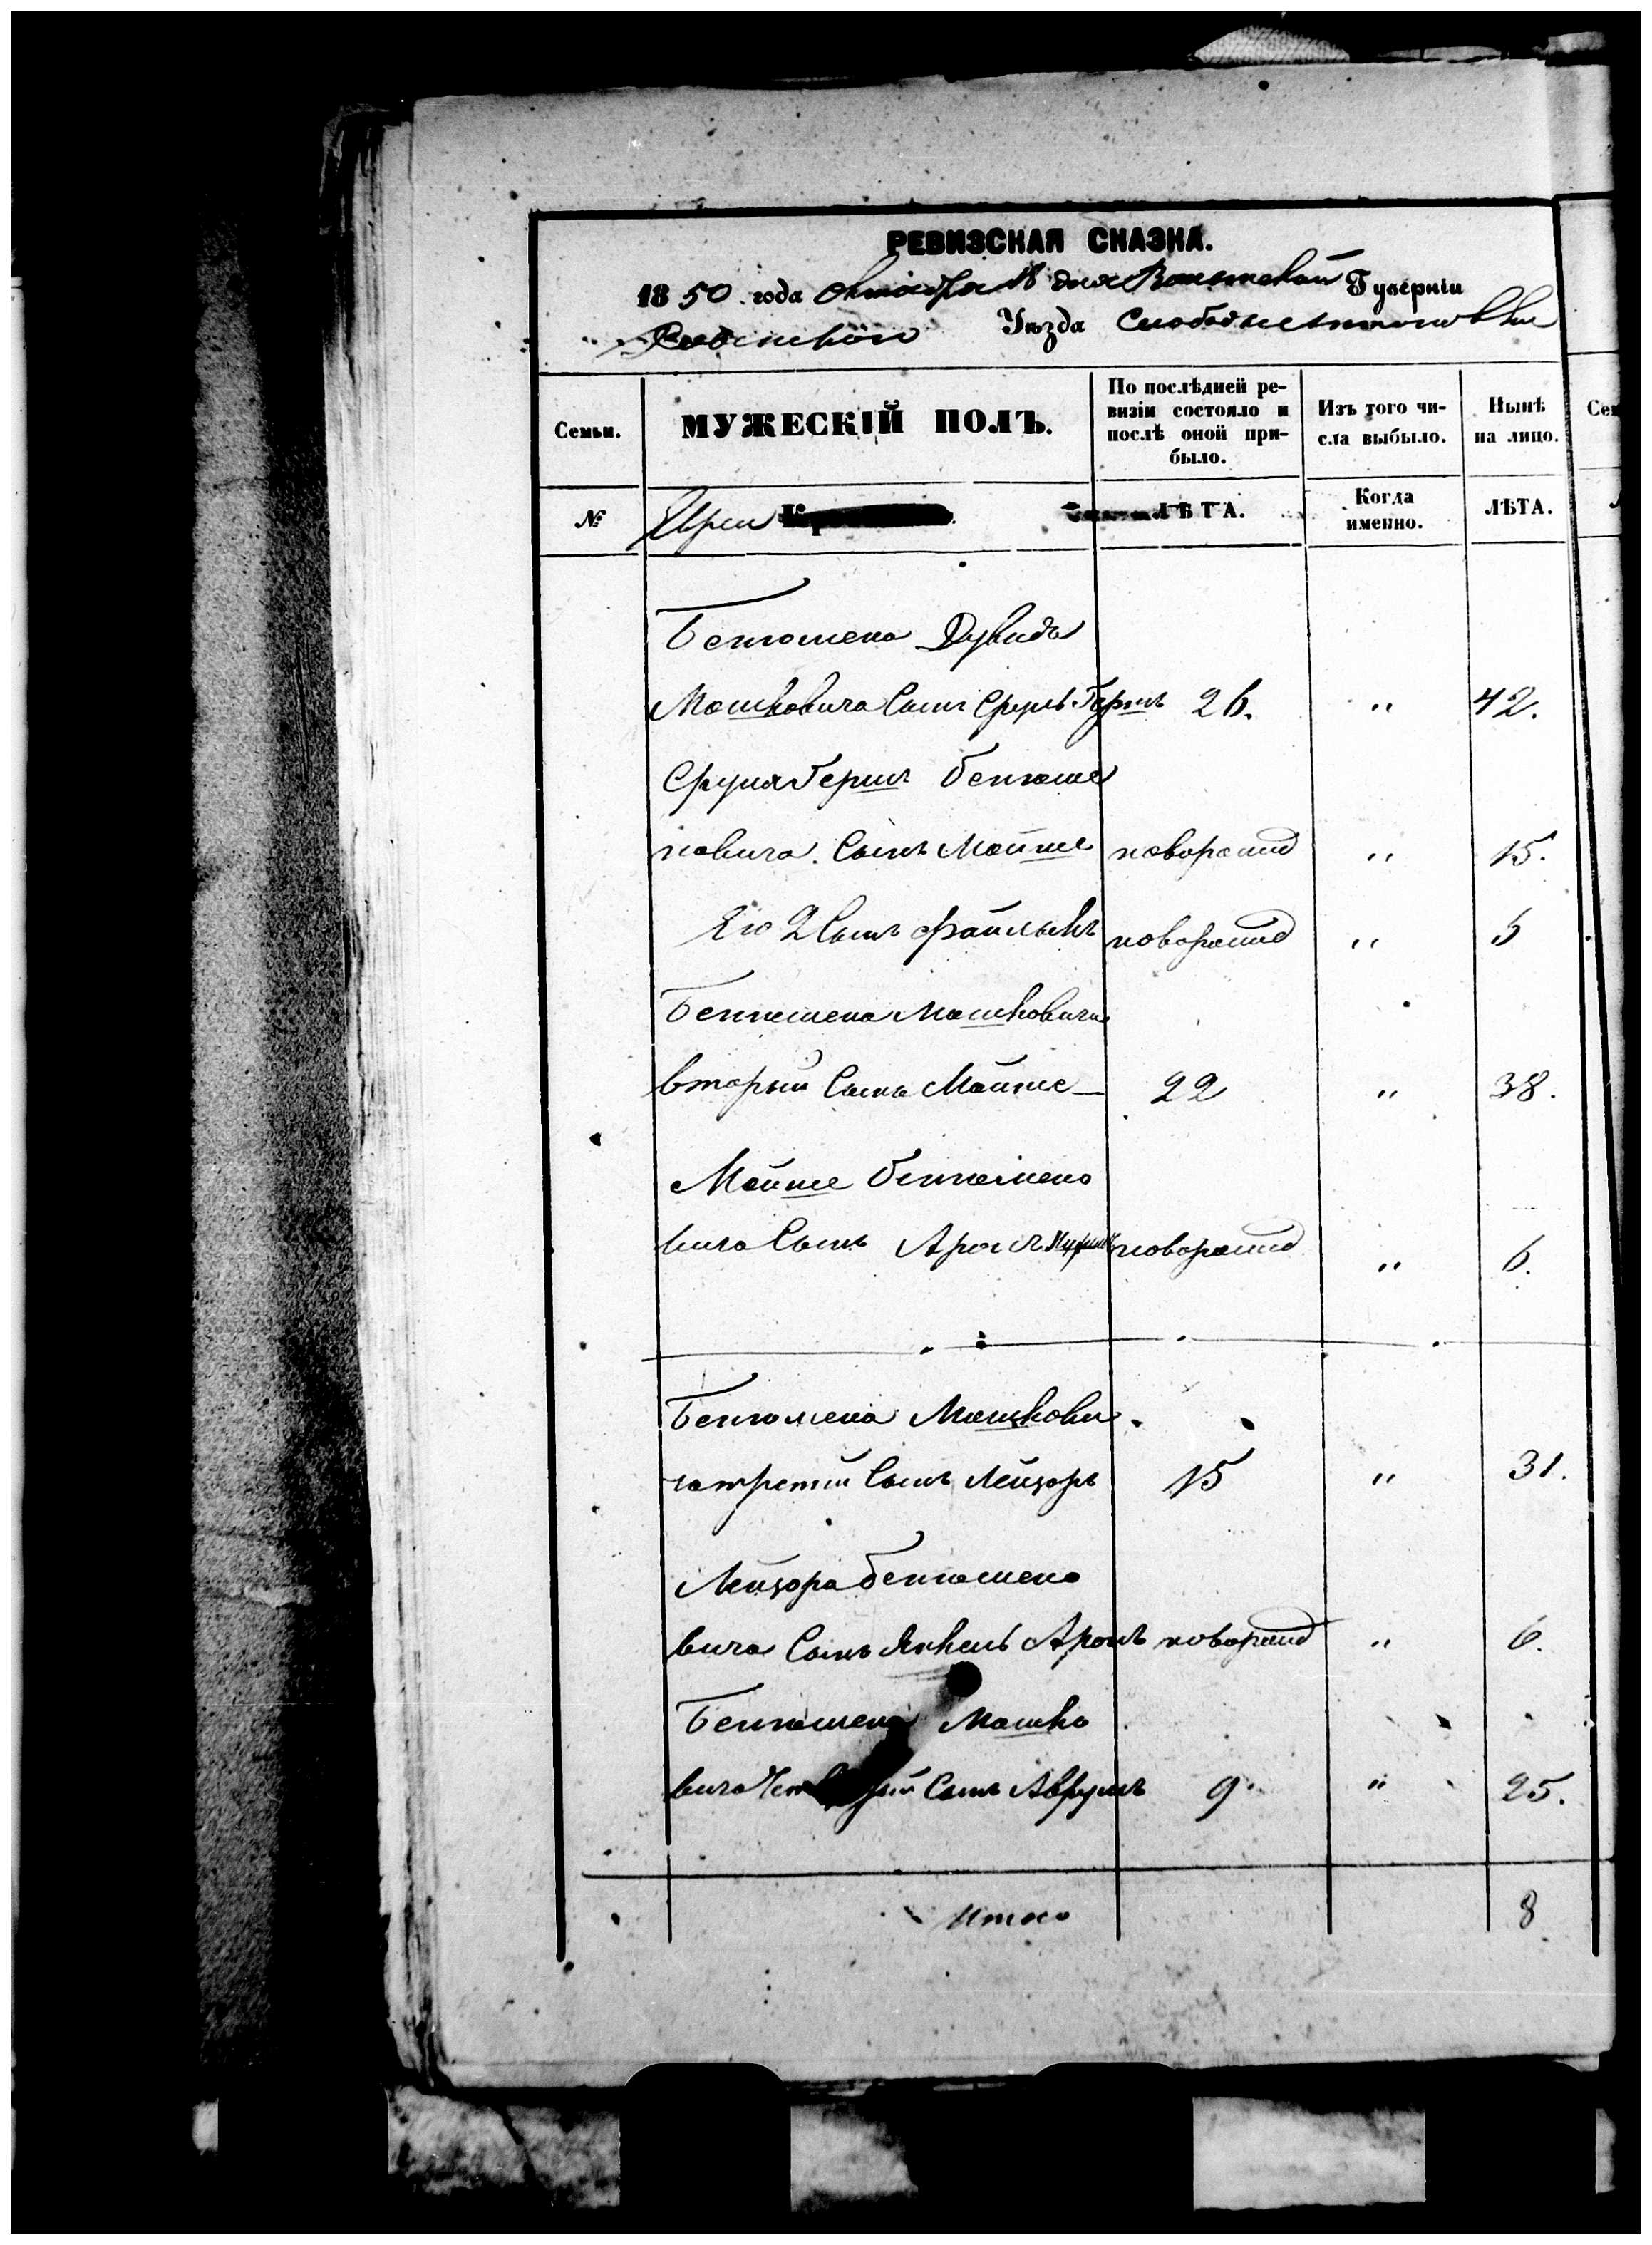 РЕВИЗСКАЯ СКАЗКА.
1850 года октября 18 дня Волынской Губерніи
Ровенскаго Уѣзда Слободы
Семьи. МУЖЕСКІЙ ПОЛЪ. По послѣдней ре-визіи состояло и послѣ оной при-было. Изъ того чи-сла выбыло. Нынѣ на лицо. Сем
№ Евреи ЛѢТА. Когда именно. ЛѢТА.
Бенюмена Дувида
Мошковича Сынъ Сруль Гершъ 26. " 42.
Сруля Герша Бенюме
новича Сынъ Мойше новорожд " 15.
Его 2 Сынъ новорожд " 5
Бенюмена Мошковича
вторый Сынъ Мойше 22 " 38.
Мойше Бенюмено
вича Сынъ новорожд " 6.
Бенюмена Мошкови
ча третій Сынъ Лейзоръ 15 " 31.
Лейзора Бенюмено
вича Сынъ Янкель Аронъ новорожд " 6.
Бенюмена Мошко
вича Четвертый Сынъ Аврумъ 9 " 25.
Итого 8